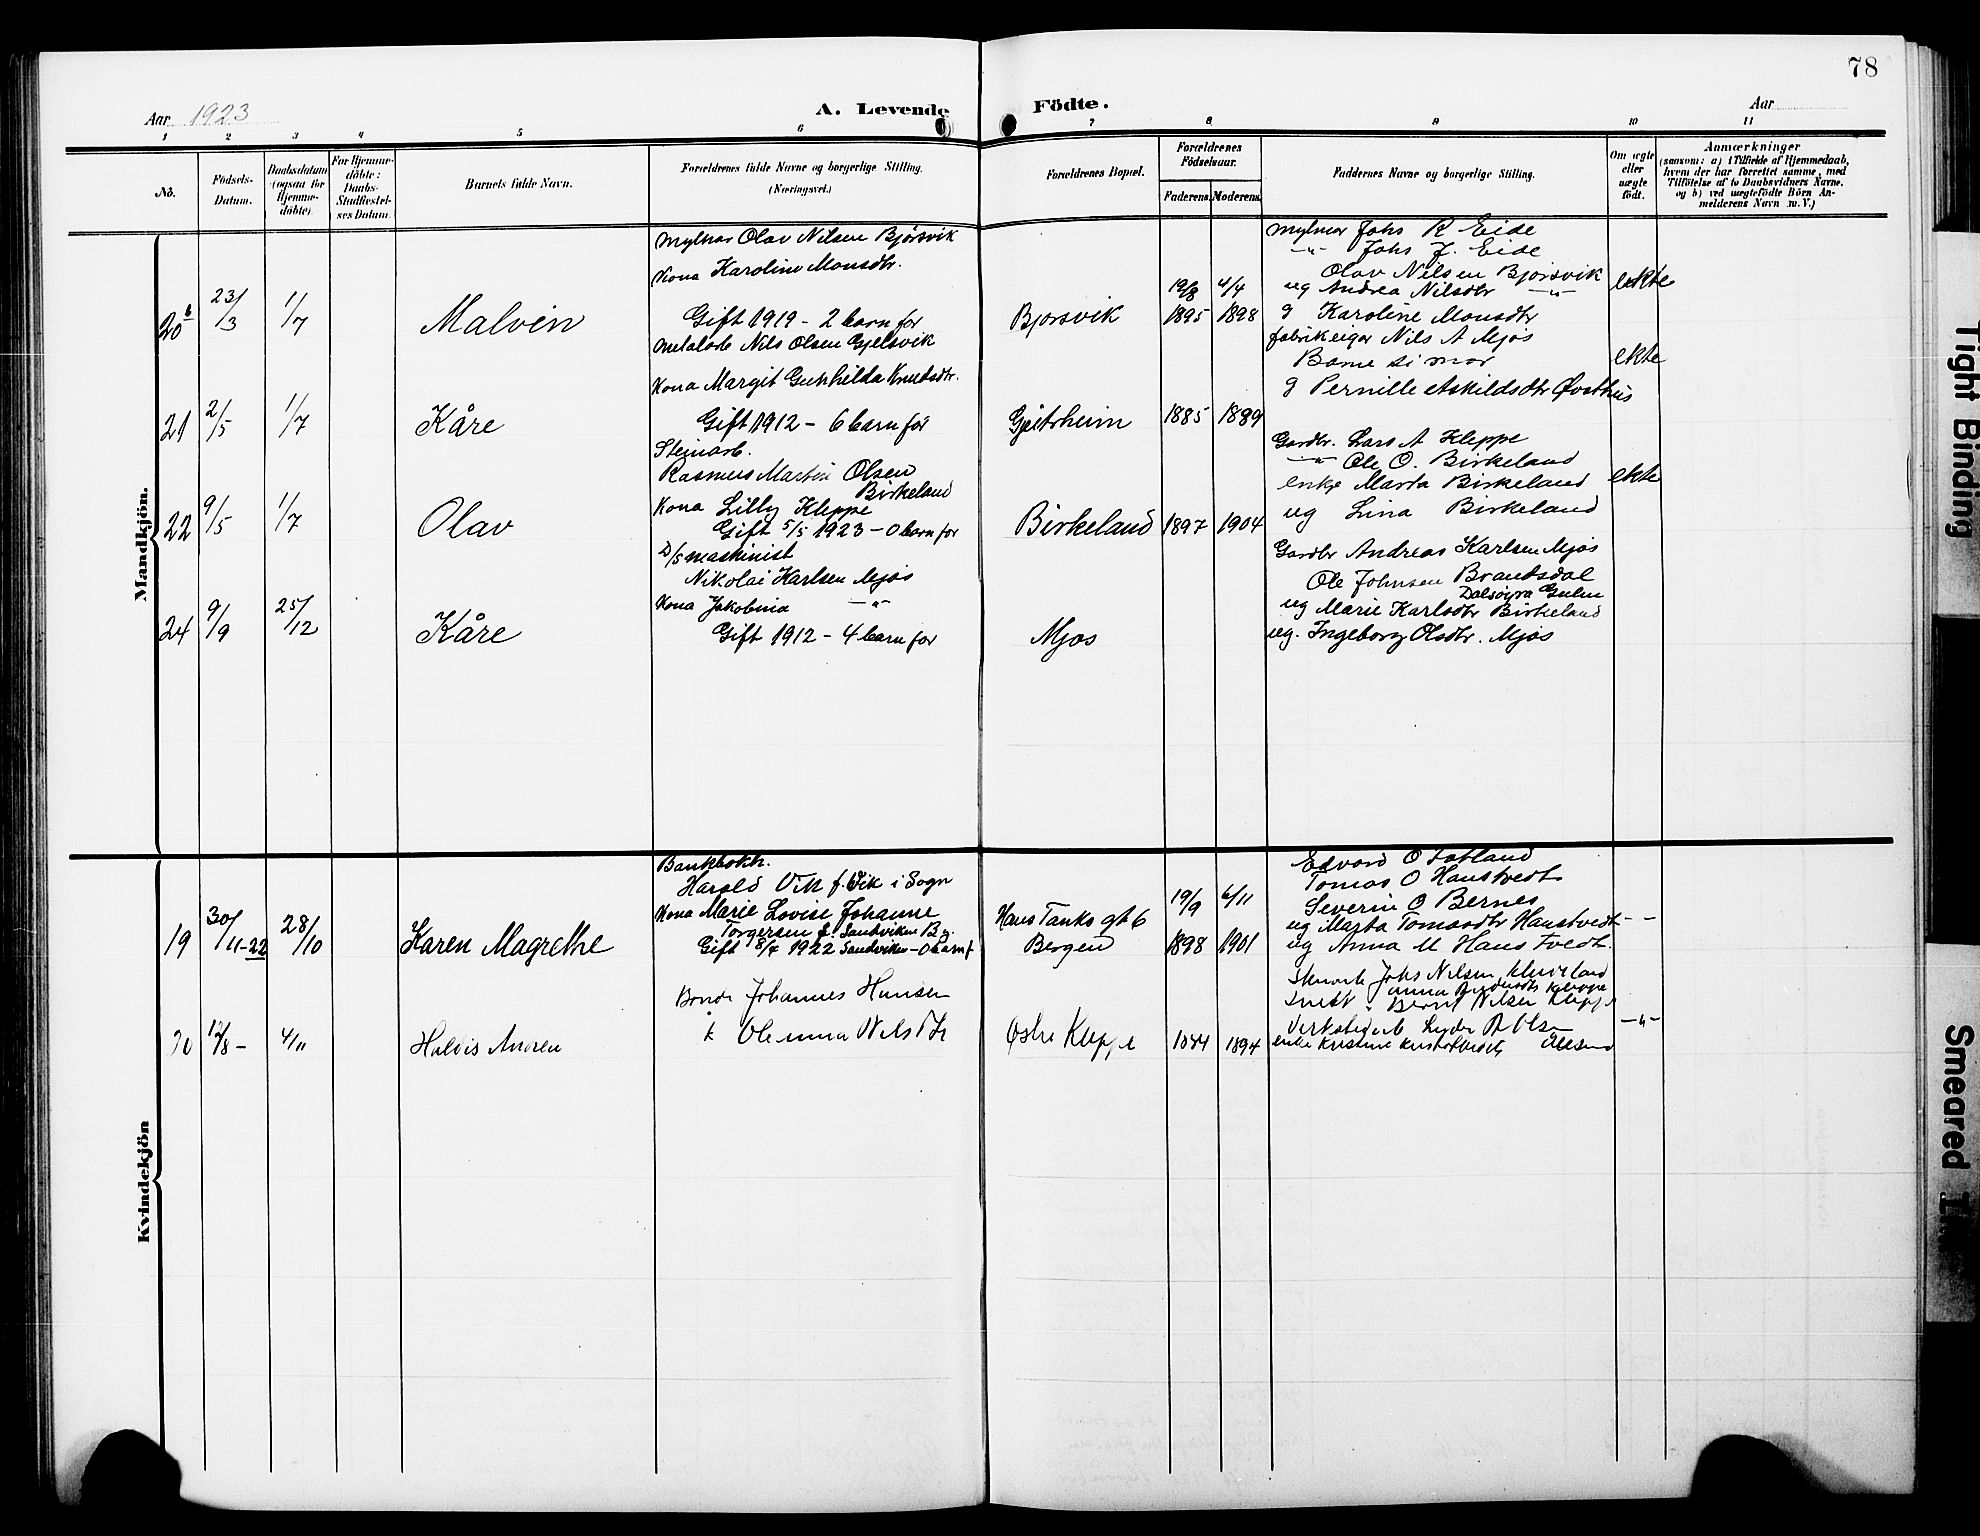 78
Aar 1923
A. Levende Födte.
Aar
1 2 3 4 5 6 7 8 9 10 11
No.
Födsels-Datum.
Daabsdatum (ogsaa for Hjemmedöbte).
For Hjemmedöbte: Daabs-Stadfæstelses Datum.
Barnets fulde Navn.
Forældrenes fulde Navne og borgerlige Stilling.
(Næringsvei.)
Forældrenes Bopæl.
Forældrenes Födselsaar.
Faderens. Moderens.
Faddernes Navne og borgerlige Stilling.
Om ægte eller uægte födt.
Anmærkninger
(saasom: a) i Tilfælde af Hjemmedaab, hvem der har forrettet samme, med Tilföielse af to Daabsvidners Navne, og b) ved uægtefödte Börn Anmelderens Navn m. V.)
Mandkjön.
20 b 23/3 1/7 Malvin
mylnar Olav Nilsen Bjørsvik
Kona Karoline Monsdtr.
Gift 1919 - 2 barn før
Bjorsvik
19/8 1895 4/4 1898
mylnar Johs R Eide
-"- Johs J. Eide
Olav Nilsen Bjorsvik
ug Andrea Nilsdtr -"-
g Karoline Monsdtr
ekte
21 2/5 1/7 Kåre
metalarb Nils Olsen Gjelsvik
Kona Margit Gunhilda Knudsdtr.
Gift 1912 - 6 barn før
Gjeitrheim
1885 1889
fabrikeigar Nils A Mjøs
Barne si mor
g Pernille Askildsdtr Øvsthus
ekte
22 9/5 1/7 Olav
Steinarb.
Rasmus Martin Olsen
Birkeland
Kona Lilly Kleppe
Gift 5/5 1923 - 0 barn før
Birkeland
1897 1904
Gardbr. Lars A Kleppe
-"- Ole O. Birkeland
enkje Marta Birkeland
ug Lina Birkeland
ekte
24 9/9 25/12 Kåre
D/S maskinist
Nikolai Karlsen Mjøs
Kona Jakobina -"-
Gift 1912 - 4 barn før
Mjøs
Gardbr Andreas Karlsen Mjøs
Ole Johnsen Brandsdal
Dalsøyra Gulen
ug Marie Karlsdtr Birkeland
ug. Ingeborg Olsdtr. Mjøs
Kvindekjön
19 30/11-22 28/10 Karen Magrethe
Bankbokh.
Harald Vik f. Vik i Sogn
Kona Marie Lovise Johanne
Torgersen f. Sandviken Bg.
Gift 8/4 1922 Sandviken - 0 barn f
Hans Tanks gt 6
Bergen
19/9 1898 6/11 1901
Edvard O Fotland
Tomas O Hanstvedt
Severin O Bernes
ug Marta Tomasdtr Hanstvedt
ug Anna M Hanstvedt.
- -
20 12/8 - 4/11 Haldis
Bonde Johannes Hansen
k Nilsdtr
Østre Kleppe
1894
Johs Nilsen
Anna Kleppe
Bernt Nilsen Kleppe
enke Kristine
-"-
Tight Binding
Smeared